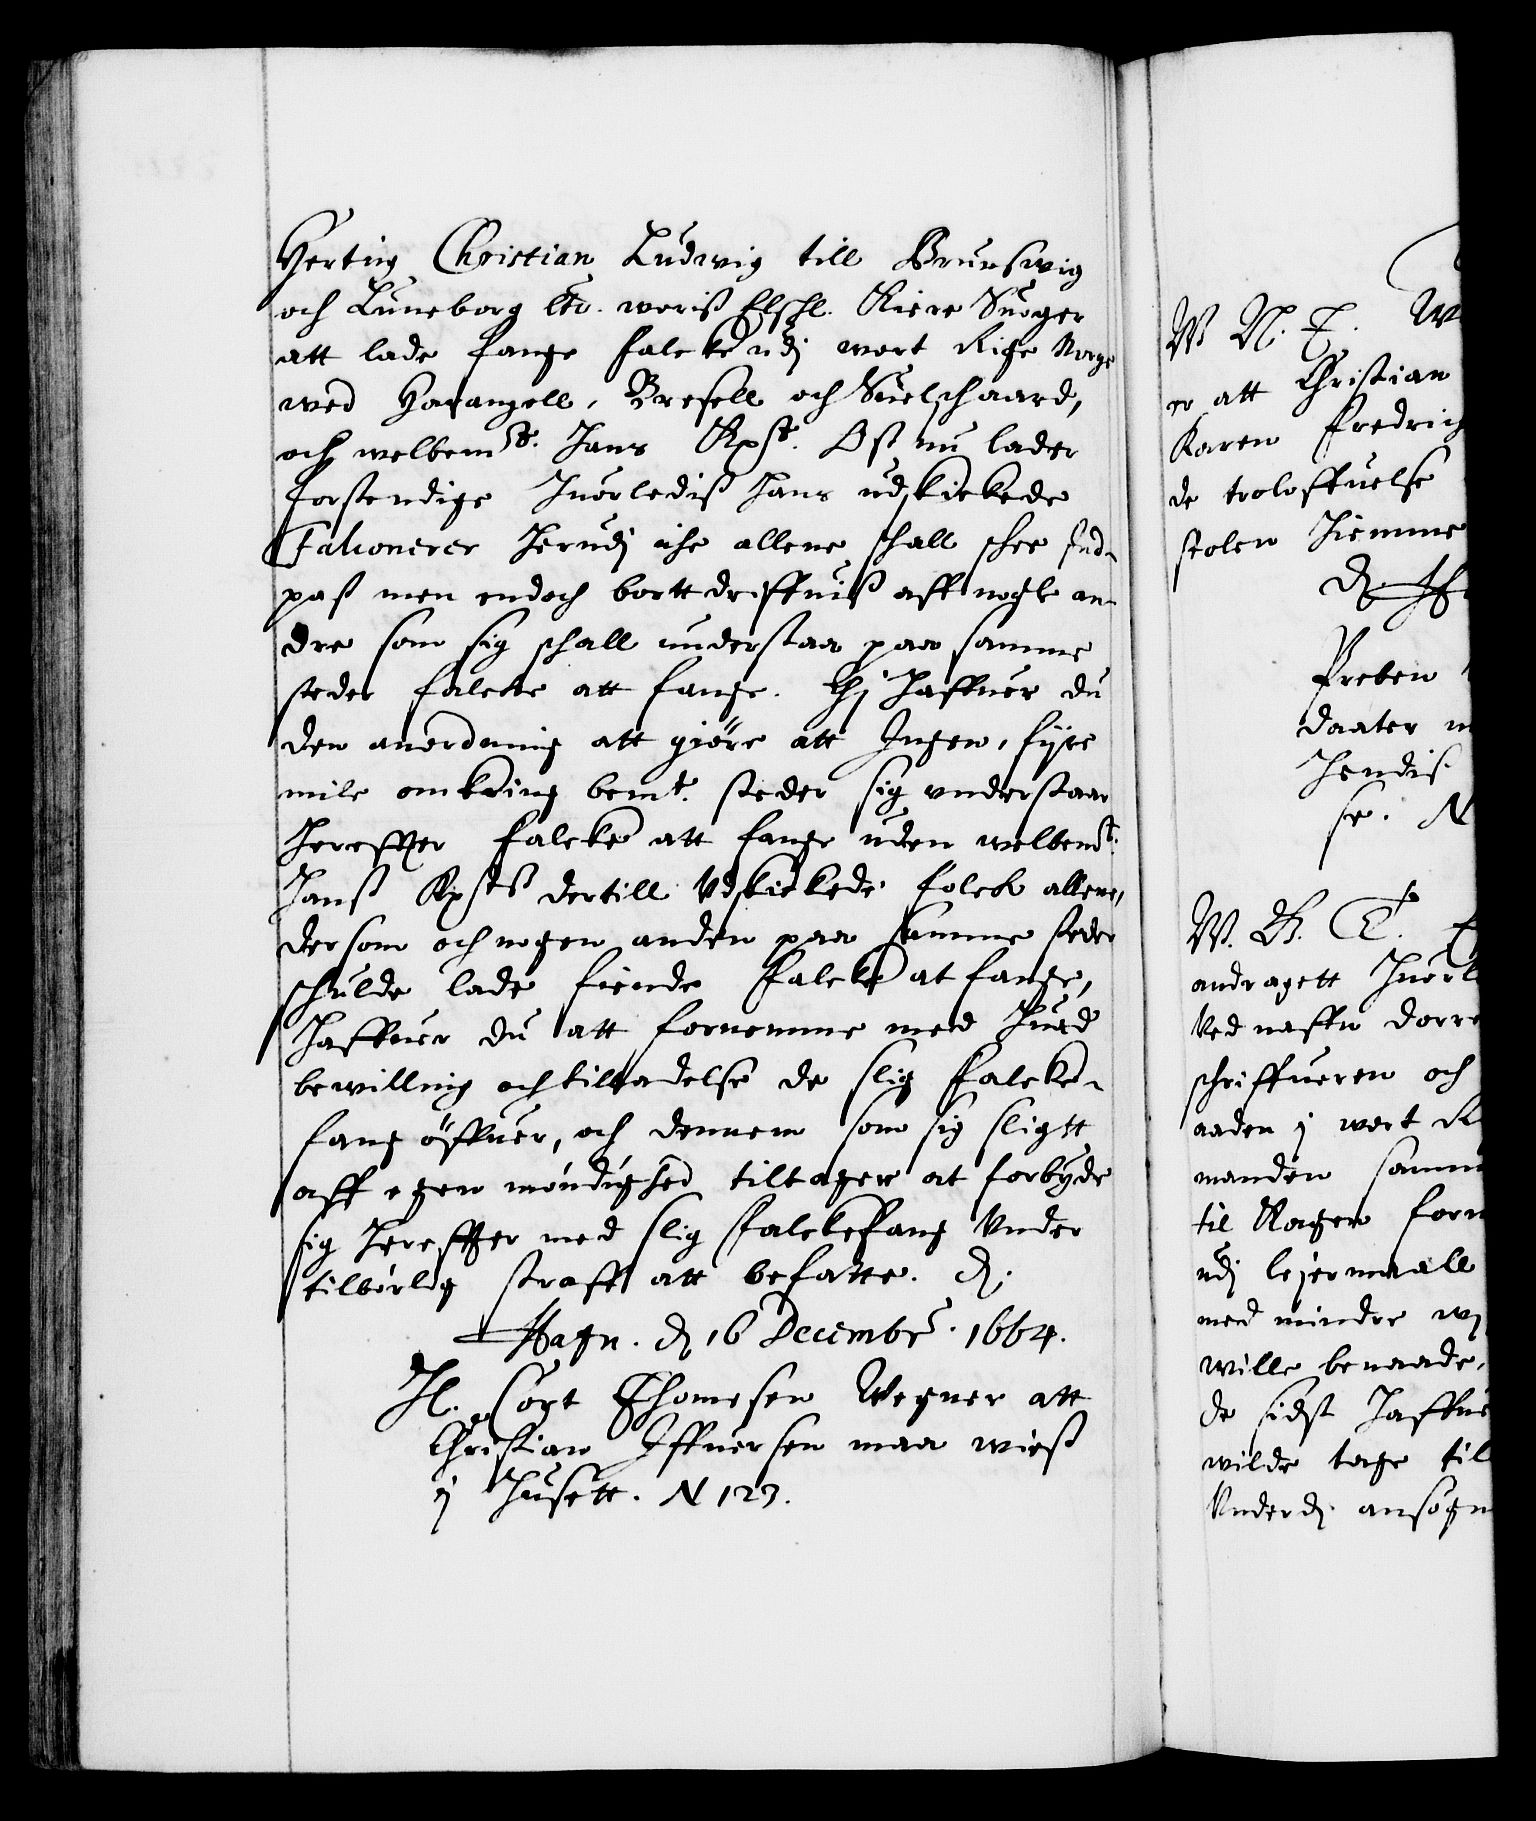 Hertig Christian Ludwig till Brunswig
och Luneborg etc. woris Elschl. Kiere Suoger
att lade fange falcke udj wort Rige Norge
wed Harangell, Bresell och Suelschaard,
och welbemte. Hans Kpst. Os nu lader
forstendige Huorledis Hans udskickede
Falconerer Herudj iche allene schall schee Ind-
pas men endoch bortt driffuis aff nogle an-
dre som sig schall understaa paa samme
steder falcke att fange. Thj Haffuer du
den anordning att giøre att Ingen, fijre
mile omkring bemt. steder sig understaar
Hereffter falcke att fange uden welbemt.
Hans Kpsts dertill Udskickede folck allene,
dersom och nogen anden paa samme steder
schulde lade finde falcke at fange,
Haffuer du att fornemme med Huad
bewilling och tilladelse de slig falcke-
fang øffuer, och dennem som sig sligtt
aff egen møndighed tiltager at forbyde
sig Hereffter med slig falckefang Under
tilbørlig straff att befatte. D.
Hafn. d 16 Decembr. 1664.
H. Cort Thomesen Wegner att
Christian Iffuersen maa wies
j Husett. N 123.
W N. T. W
er att Christian
Karen fredrich
de troloffuelse
stolen Hiemme
D. H
Preben
daater
Hendis
se. N
W. G. T.
andragett Huorl
Ved naffn dorre
schriffueren och
aaden j wort R
manden samme
til Kagen forn
udj lejermaall
med mindre wj
wille benaade,
de sidst Haffue
wilde tage til
Underd. ansøgn